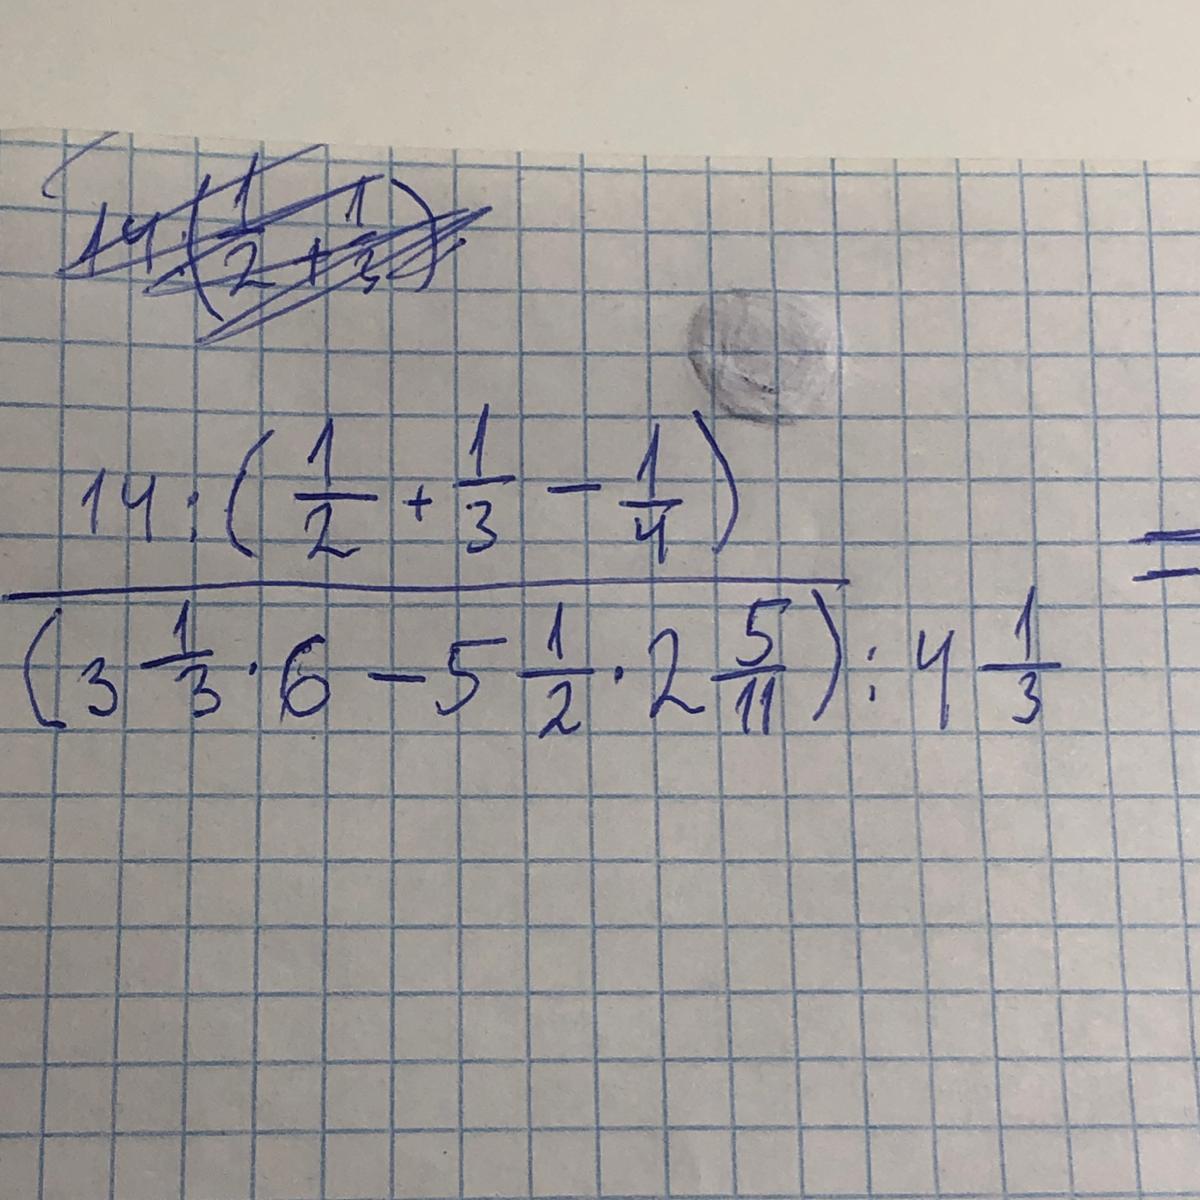 14:(1/2 + 1/3
14:(1/2 + 1/3 - 1/4)
(3 1/3 · 6 - 5 1/2 · 2 5/11) : 4 1/3 =